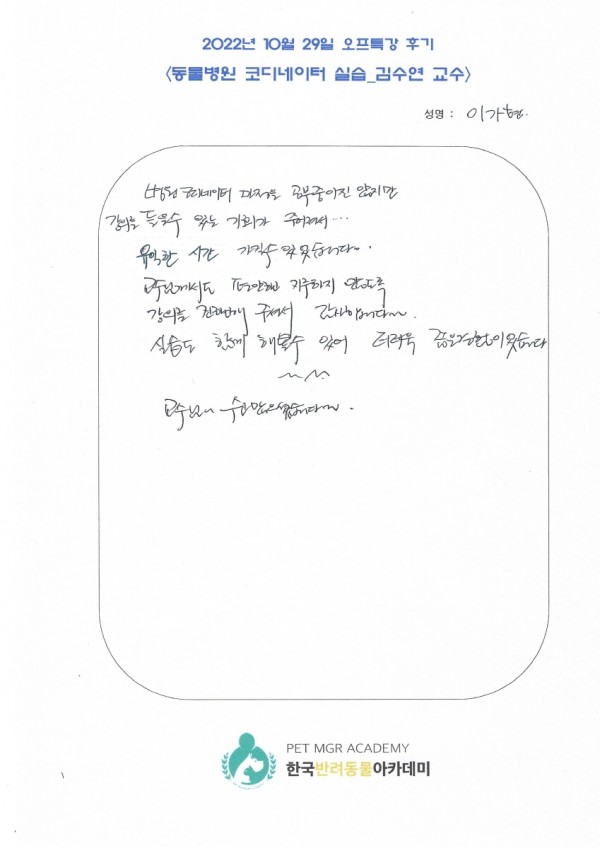 2022년 10월 29일 오프특강 후기
<동물병원 코디네이터 실습_김수연 교수>
성명 : 이가현
병원코디네이터 과정을 공부중이진 않지만
강의를 들을수 있는 기회가 주어져서…
유익한 시간 가질수있었습니다~.
교수님께서도 지루하지 않도록
강의를 진행해 주셔서 감사합니다~
실습도 함께 해볼수 있어 더더욱 좋은경험이였습니다
교수님~ 수고많으셨습니다~.
PET MGR ACADEMY
한국반려동물아카데미